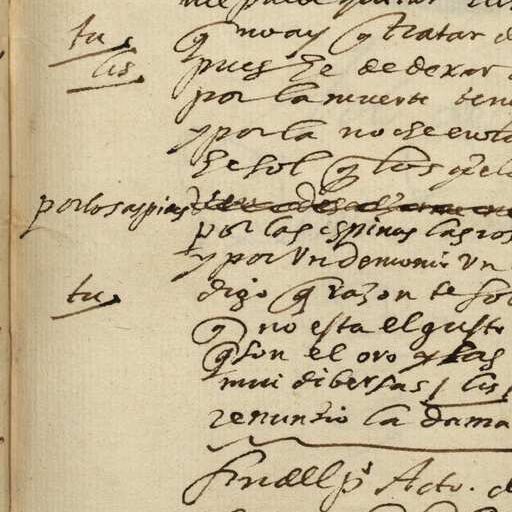 tu. q̃ no ay q̃ tratar d
lis. pues he de dexar
por la muerte
y por la noche
he sol q̃ los
por los aspides
por las espinas las ros
y por Un demonio Un
tu. digo q̃ razon te so
q̃ no esta el gusto
q̃ son el oro y las
mui dibersas / lis
renunzio la dama
fin del pº Acto. d